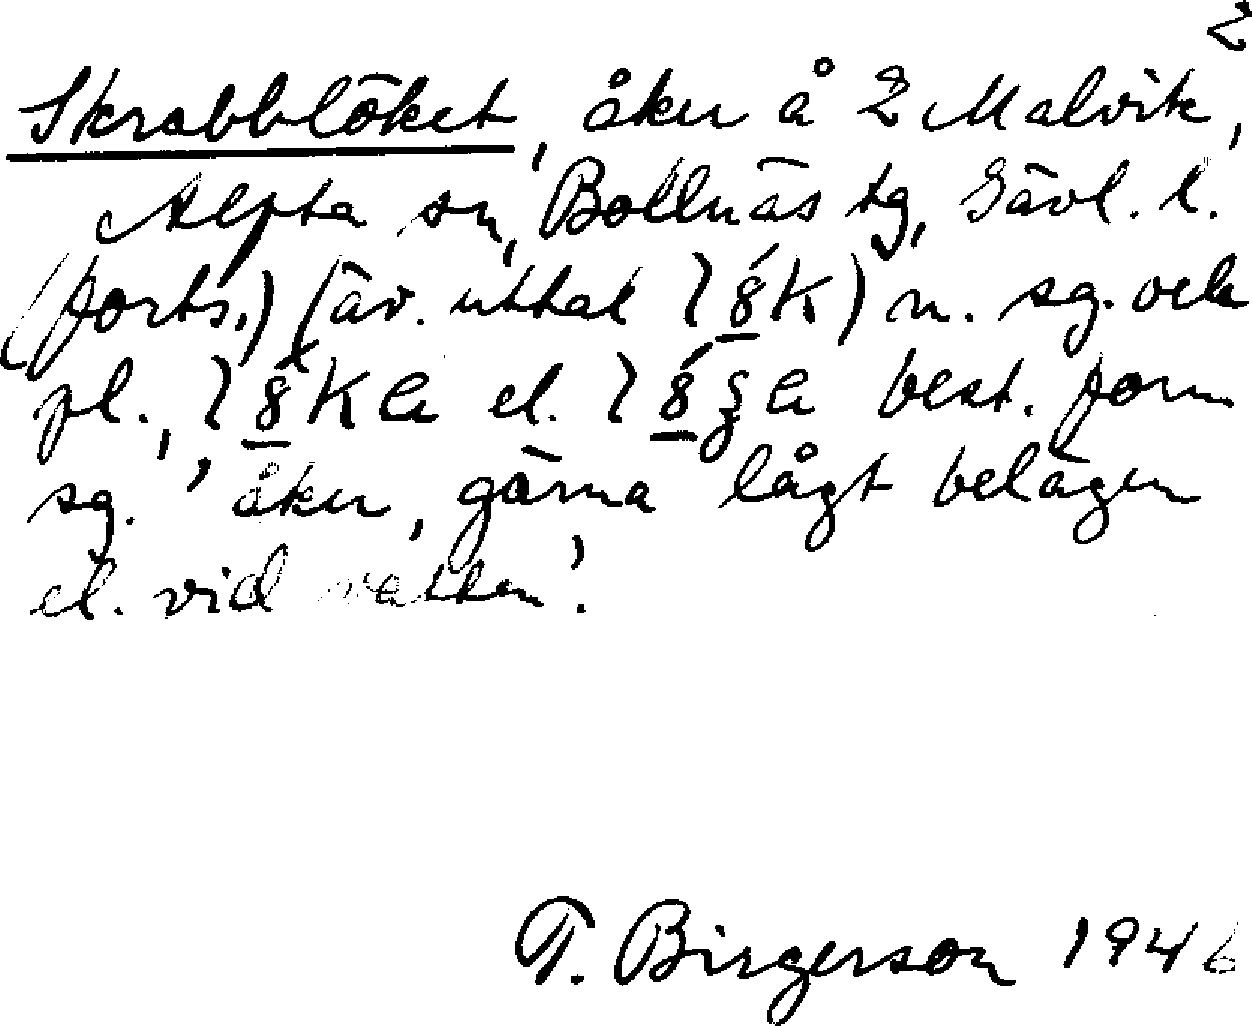 2
Skrabblöket, åker å 2 Malvik,
Alfta sn, Bollnäs tg, Gävl. l.
(forts.) (äv. uttal l8k) n. sg. och
pl., l8ka el. l8ʒa best. form
sg. 'åker, gärna lågt belägen
el. vid vatten'.
T. Birgerson 1946